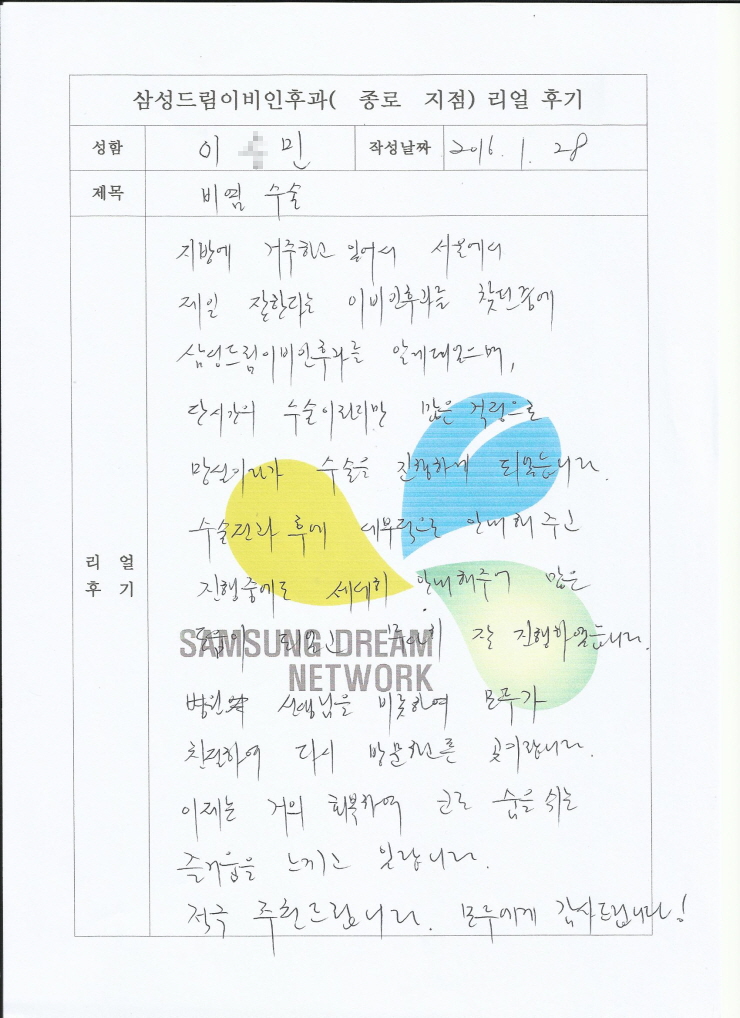 삼성드림이비인후과( 종로 지점) 리얼 후기
성함 이 민 작성날짜 2016. 1. 28
제목 비염 수술
리얼 후기
지방에 거주하고 있어서 서울에서
제일 잘한다는 이비인후과를 찾던중에
삼성드림이비인후과를 알게되었으며,
단시간의 수술이라지만 많은 걱정으로
망설이다가 수술을 진행하게 되었습니다.
수술전과 후에 세부적으로 안내해 주고
진행중에도 세세히 안내해주어 많은
도움이 되었고 무사히 잘 진행하였습니다.
SAMSUNG DREAM
NETWORK
병원 선생님을 비롯하여 모두가
친절하여 다시 방문하고픈 곳이랍니다.
이제는 거의 회복하여 코로 숨을 쉬는
즐거움을 느끼고 있답니다.
적극 추천드립니다. 모두에게 감사드립니다!